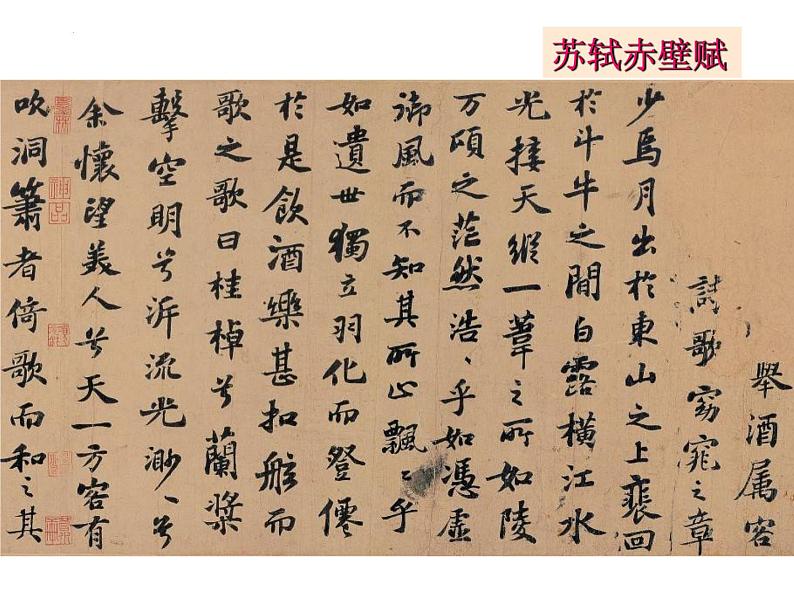 苏轼赤壁赋
舉酒属客
詩歌窈窕之章
少焉月出於東山之上裴回
於斗牛之間白露橫江水
光接天縱一葦之所如陵
万頃之茫然浩〻乎如憑虛
御風而不知其所止飄〻乎
如遺世獨立羽化而登僊
於是飲酒樂甚扣舷而
歌之歌曰桂棹兮蘭槳
擊空明兮泝流光渺〻兮
余懷望美人兮天一方客有
神品
吹洞簫者倚歌而和之其